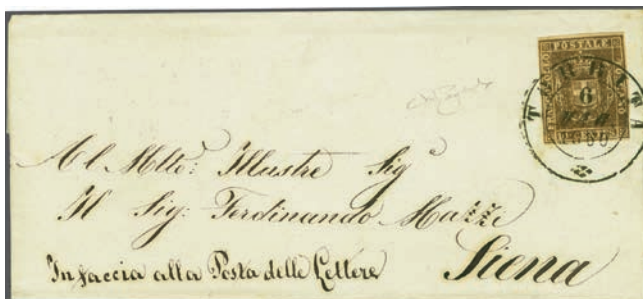 POSTALE
TURRITA
6
1860
Al Molto: Illustre Sigʳ
Il Sig: Ferdinando Mazzi
In faccia alla Posta delle Lettere
Siena